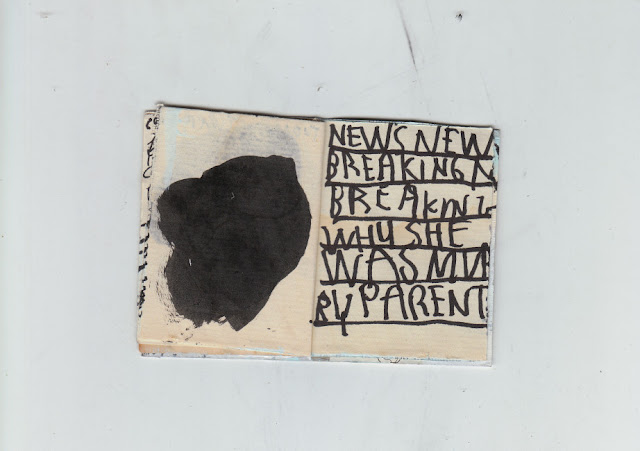 NEWS NEW
BREAKING N
BREAKING
WHY SHE
WAS
PARENT